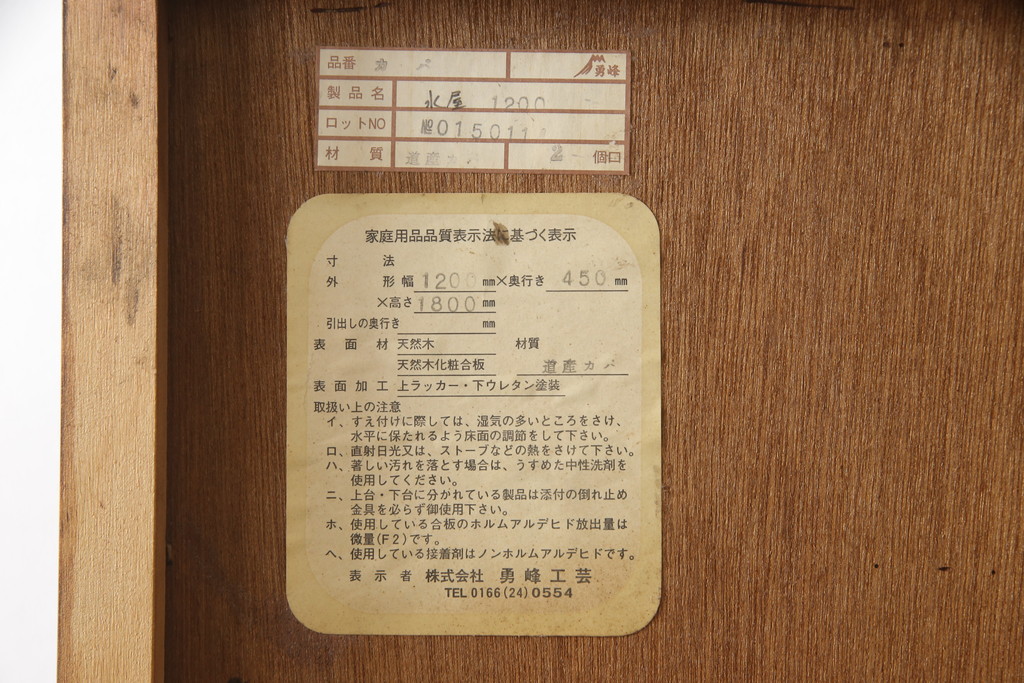 品番 カバ 勇峰
製品名 水屋 1200
ロットNO 015011
材質 道産カバ 2 個口
家庭用品品質表示法に基づく表示
寸法
外形 幅 1200 mm×奥行き 450 mm
×高さ 1800 mm
引出しの奥行き mm
表面材 天然木 材質
天然木化粧合板 道産カバ
表面加工 上ラッカー・下ウレタン塗装
取扱い上の注意
イ、すえ付けに際しては、湿気の多いところをさけ、
水平に保たれるよう床面の調節をして下さい。
ロ、直射日光又は、ストーブなどの熱をさけて下さい。
ハ、著しい汚れを落とす場合は、うすめた中性洗剤を
使用してください。
ニ、上台・下台に分かれている製品は添付の倒れ止め
金具を必らず御使用下さい。
ホ、使用している合板のホルムアルデヒド放出量は
微量(F2)です。
ヘ、使用している接着剤はノンホルムアルデヒドです。
表示者 株式会社 勇峰工芸
TEL 0166(24)0554